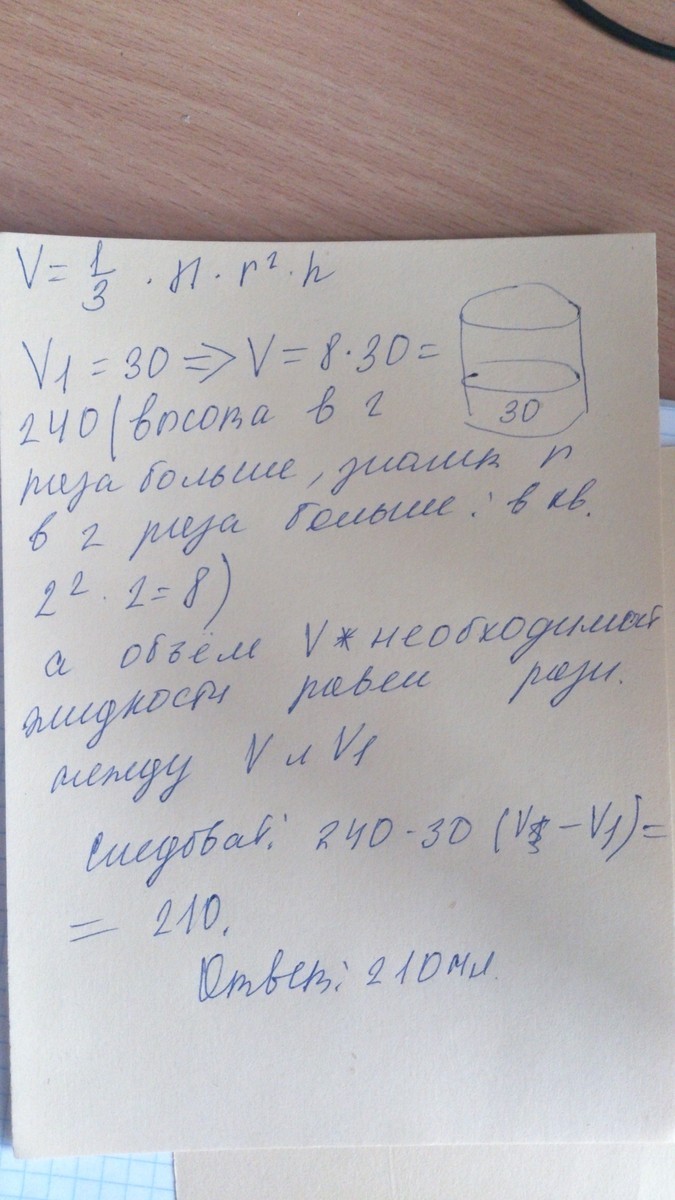 V = 1/3 · π · r² · h
V1 = 30 => V = 8·30 =
30
240 (высота в 2
раза больше, значит r
в 2 раза больше: в кв.
2² · 2 = 8)
а объём V* необходимой
жидкости равен разн.
между V и V1
следоват: 240 - 30 (V - V1) =
= 210.
Ответ: 210 мл.